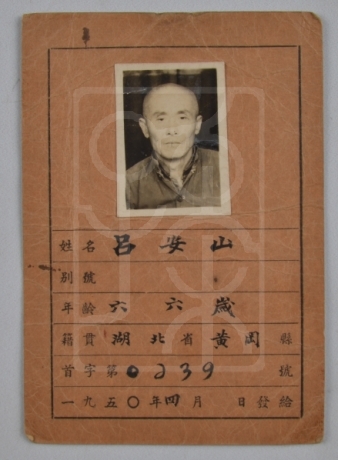 姓名 呂安山
別號
年齡 六六歲
籍貫 湖北省黃岡縣
首字第0239號
一九五〇年四月 日發給